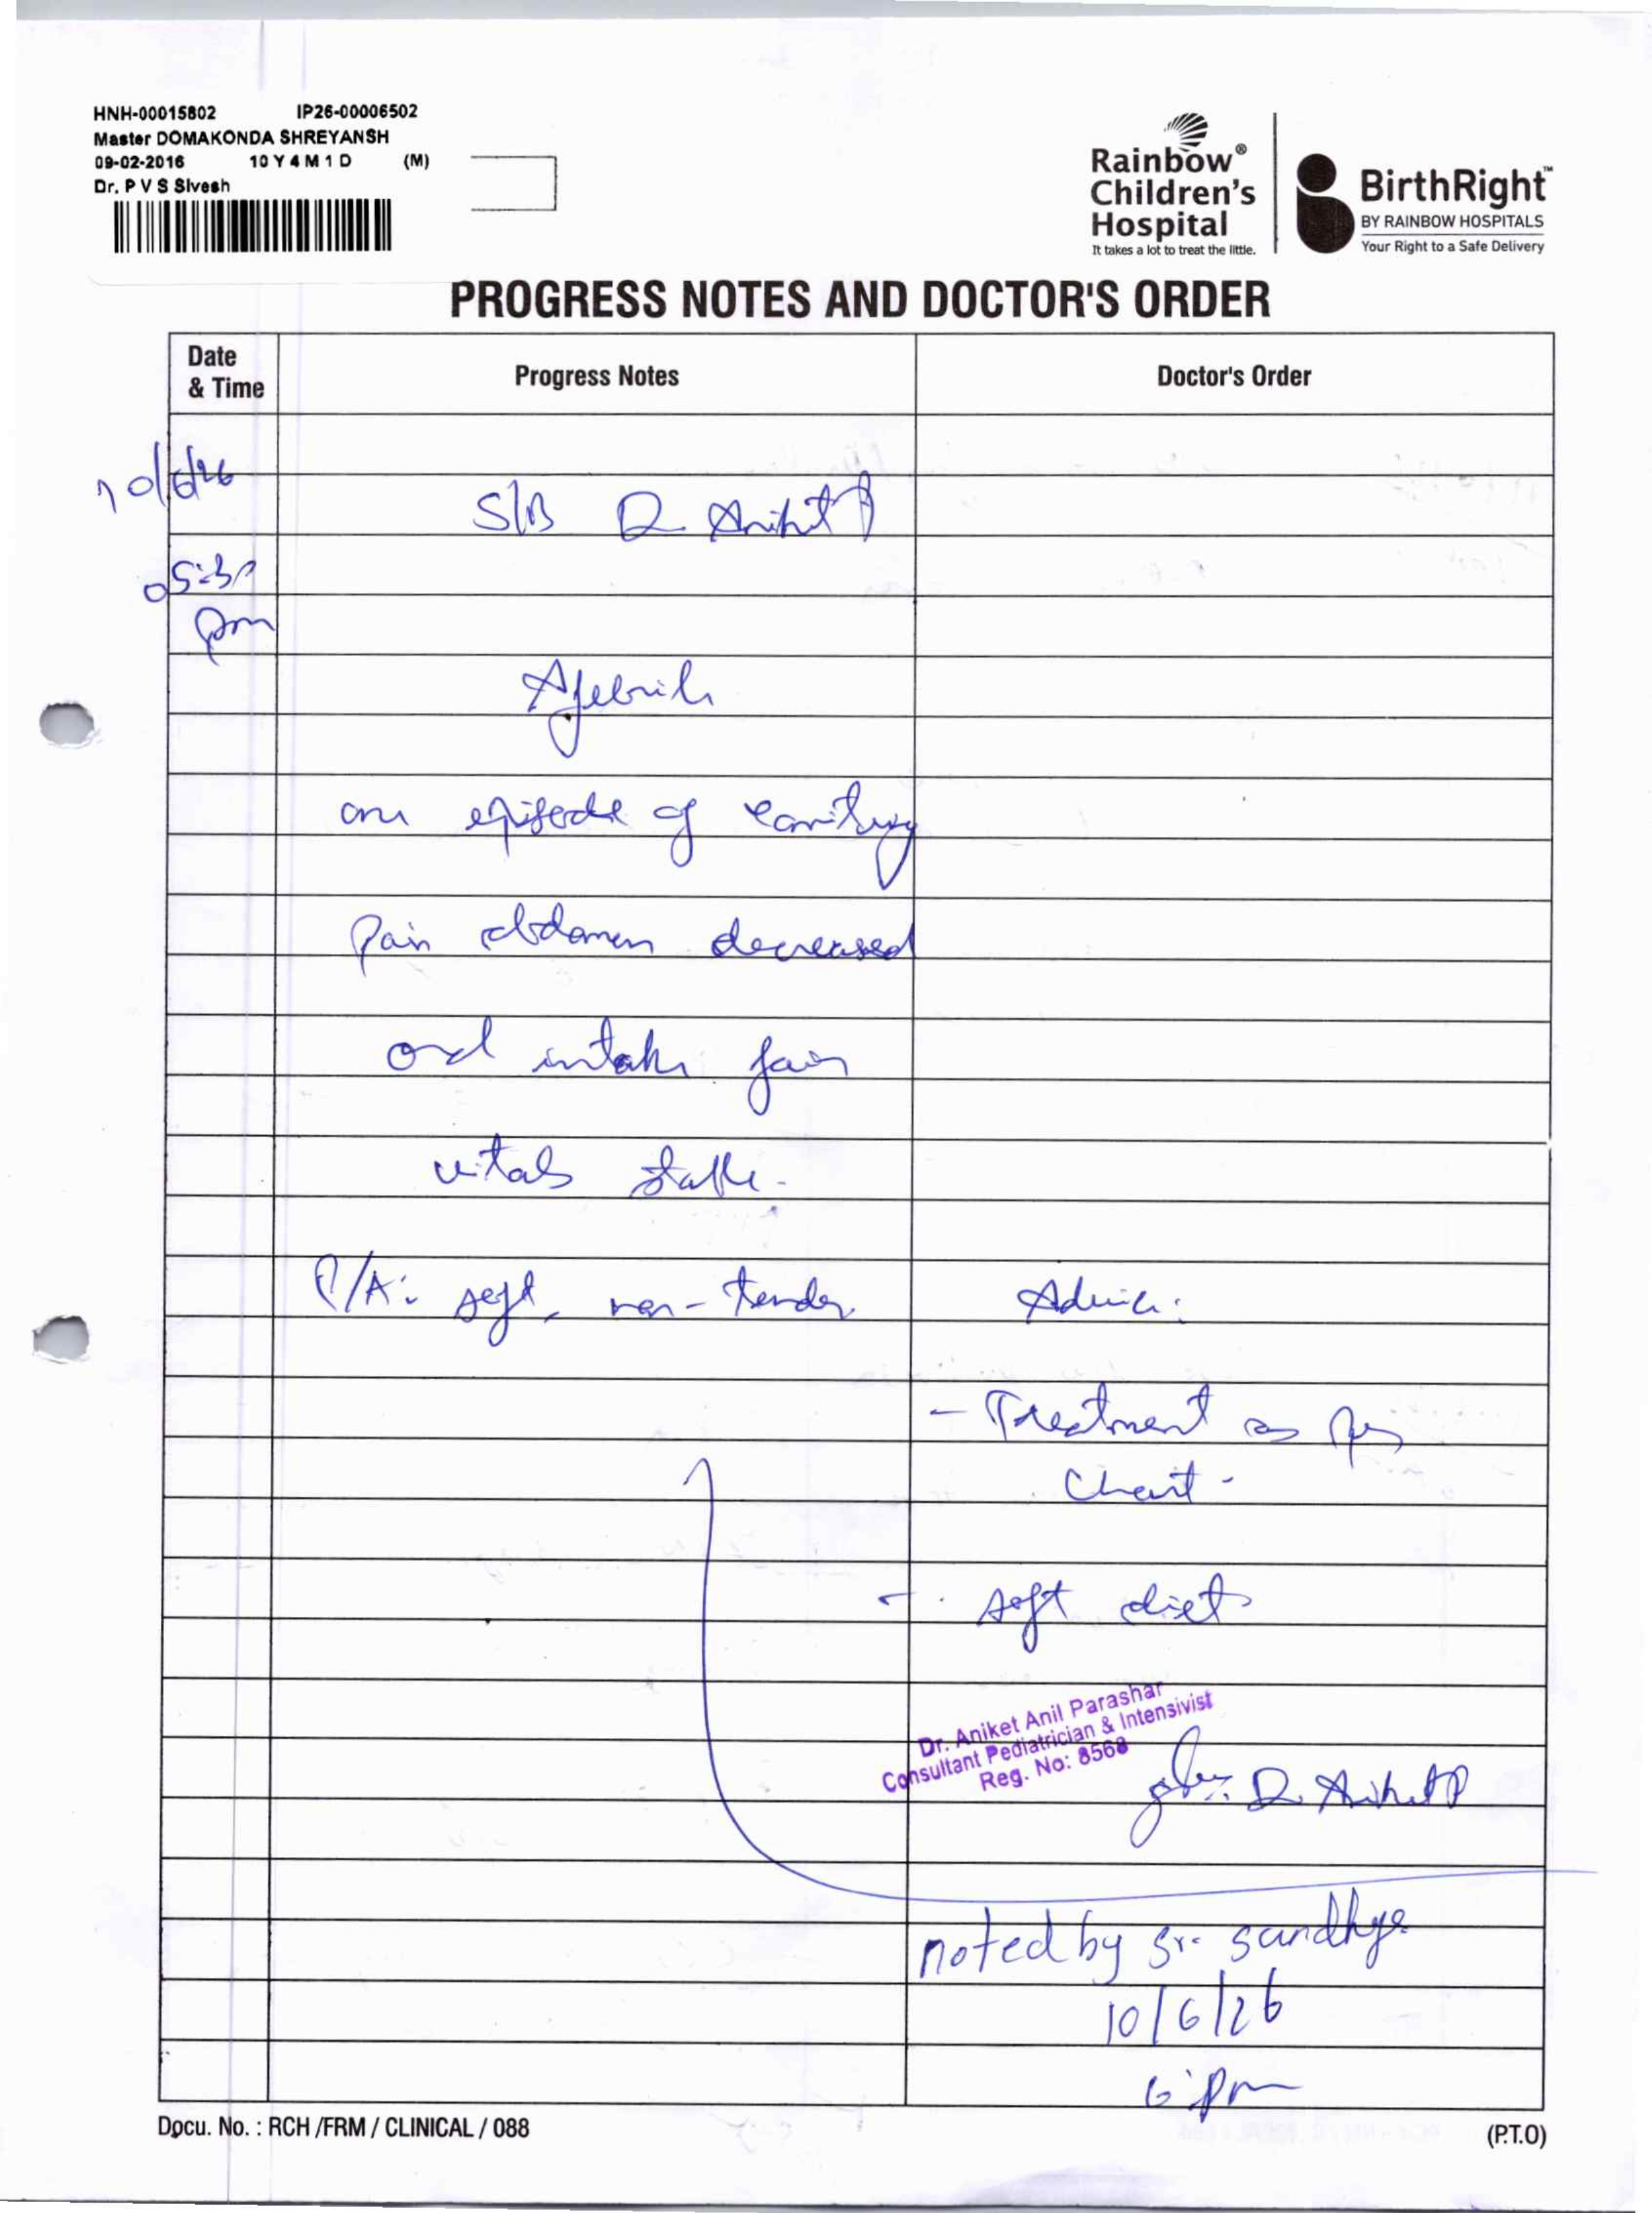 HNH-00015802 IP26-00006502
Master DOMAKONDA SHREYANSH
09-02-2016 10 Y 4 M 1 D (M)
Dr. P V S Sivesh
Rainbow®
Children's
Hospital
It takes a lot to treat the little.
BirthRight™
BY RAINBOW HOSPITALS
Your Right to a Safe Delivery
PROGRESS NOTES AND DOCTOR'S ORDER
Date
& Time
Progress Notes
Doctor's Order
10/6/26
S/B Dr. Aniket P
05:30
pm
Afebrile
one episode of vomiting
Pain abdomen decreased
oral intake fair
vitals stable.
P/A: soft, non-tender.
Advice:
- Treatment as per
Chart.
- soft diet
Dr. Aniket Anil Parashar
Consultant Pediatrician & Intensivist
Reg. No: 8568
Dr. Aniket P
noted by Sr. Sandhya
10/6/26
6 pm
Docu. No. : RCH /FRM / CLINICAL / 088
(P.T.O)